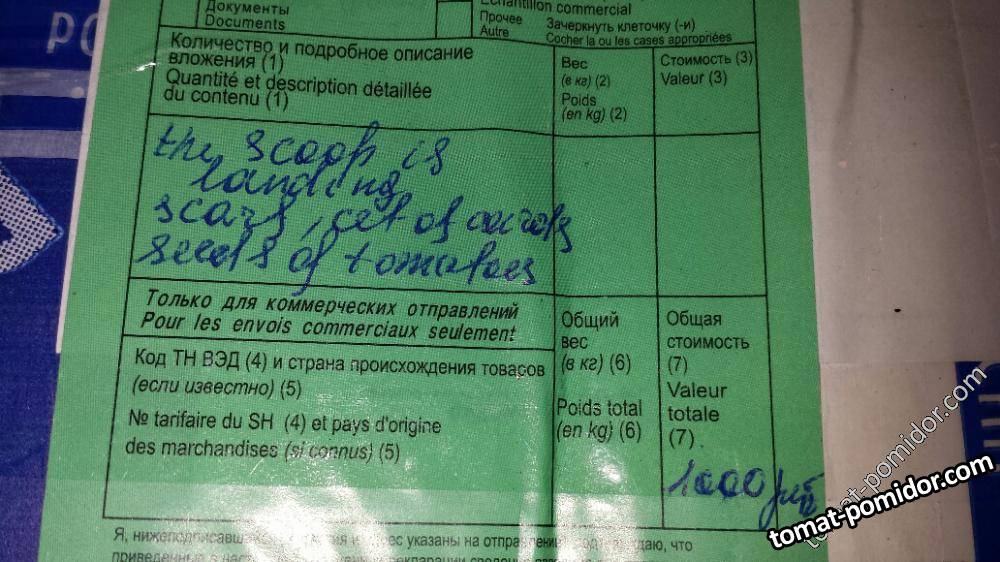 Документы
Documents
Echantillon commercial
Прочее
Autre
Зачеркнуть клеточку (-и)
Cocher la ou les cases appropriées
Количество и подробное описание
вложения (1)
Quantité et description détaillée
du contenu (1)
Вес
(в кг) (2)
Poids
(en kg) (2)
Стоимость (3)
Valeur (3)
the scoop is
landing
scarf, set of
seeds of tomatoes
Только для коммерческих отправлений
Pour les envois commerciaux seulement
Код ТН ВЭД (4) и страна происхождения товаров
(если известно) (5)
№ tarifaire du SH (4) et pays d'origine
des marchandises (si connus) (5)
Общий
вес
(в кг) (6)
Poids total
(en kg) (6)
Общая
стоимость
(7)
Valeur
totale
(7)
1000 руб
Я, нижеподписавш указаны на отправ что
tomat-pomidor.com
tomat-pomidor.com